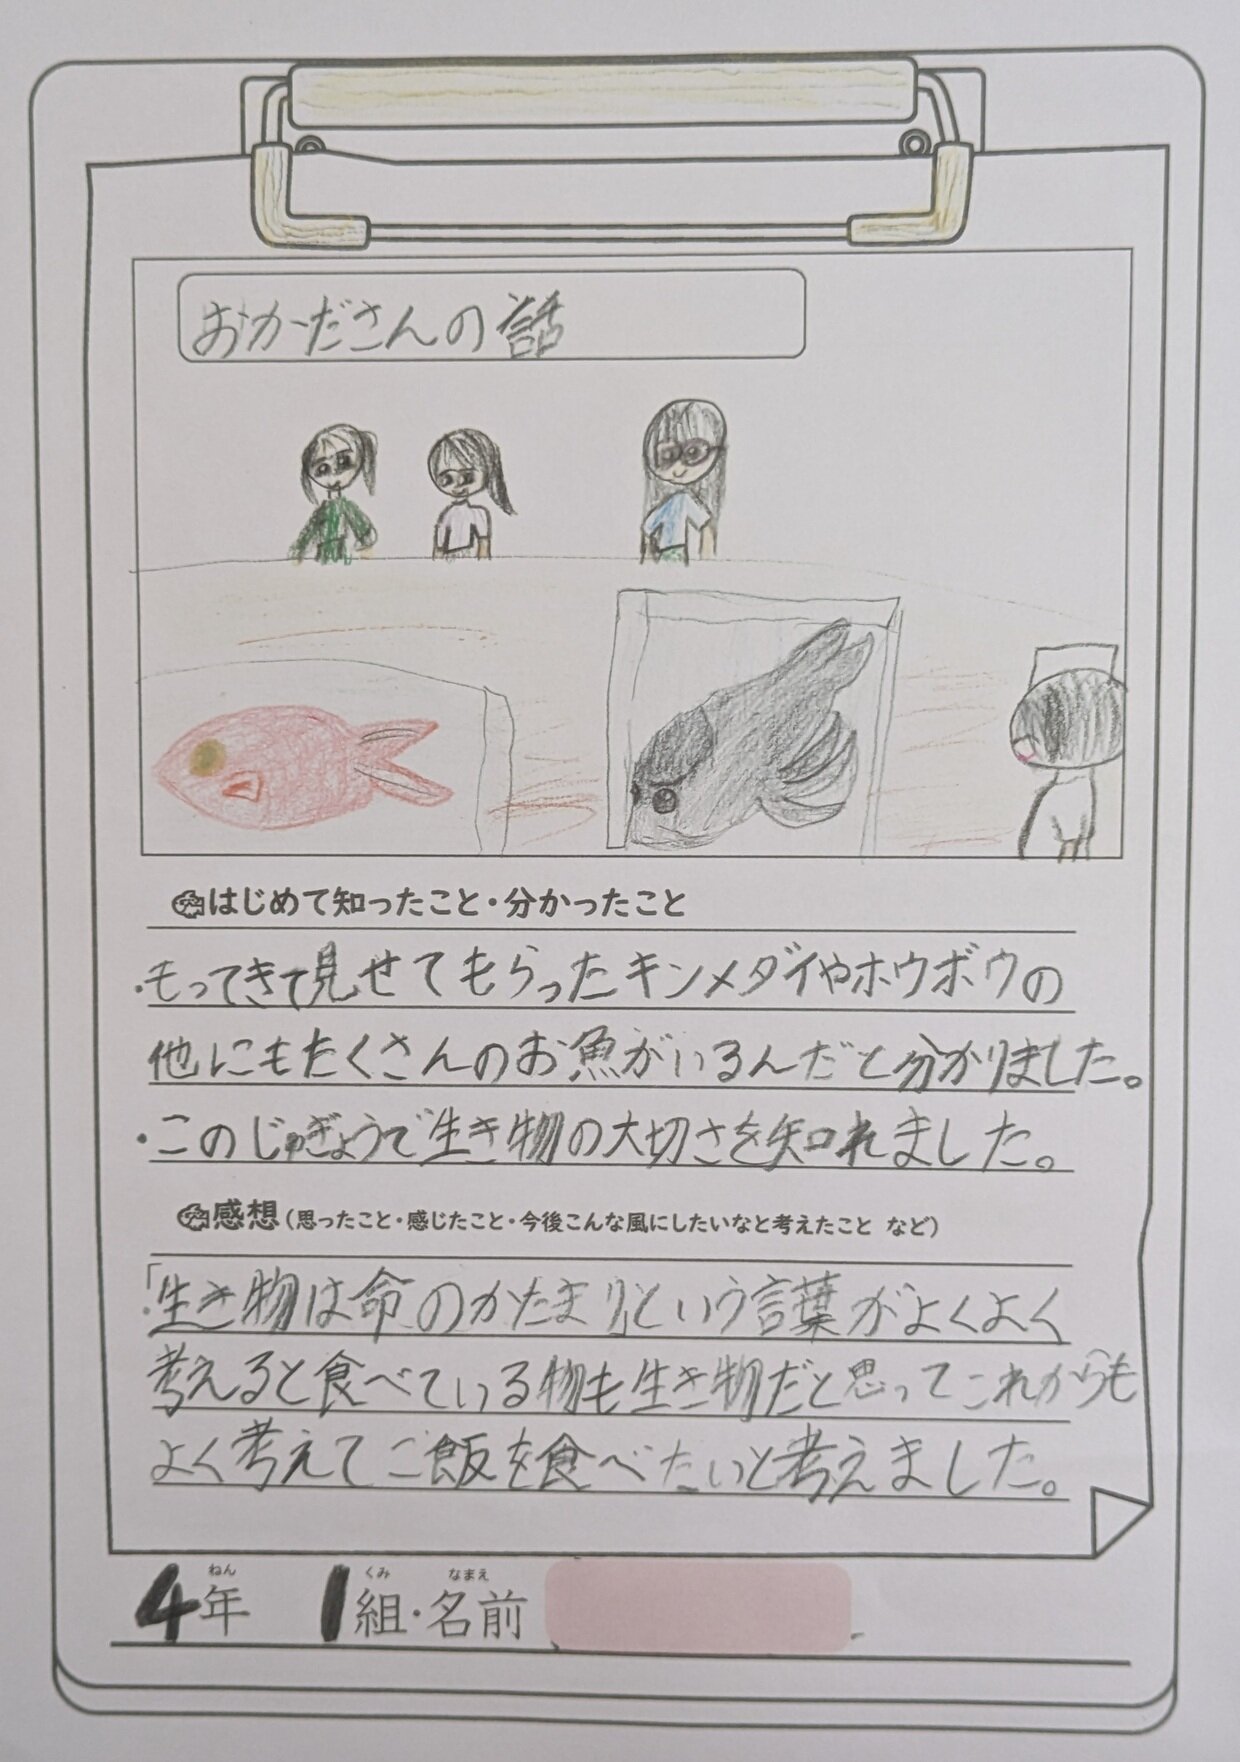 おかださんの話
はじめて知ったこと・分かったこと
・もってきて見せてもらったキンメダイやホウボウの
他にもたくさんのお魚がいるんだと分かりました。
・このじゅぎょうで生き物の大切さを知れました。
感想(思ったこと・感じたこと・今後こんな風にしたいなと考えたこと など)
「生き物は命のかたまり」という言葉がよくよく
考えると食べている物も生き物だと思ってこれからも
よく考えてご飯を食べたいと考えました。
ねん くみ なまえ
4年 1組・名前